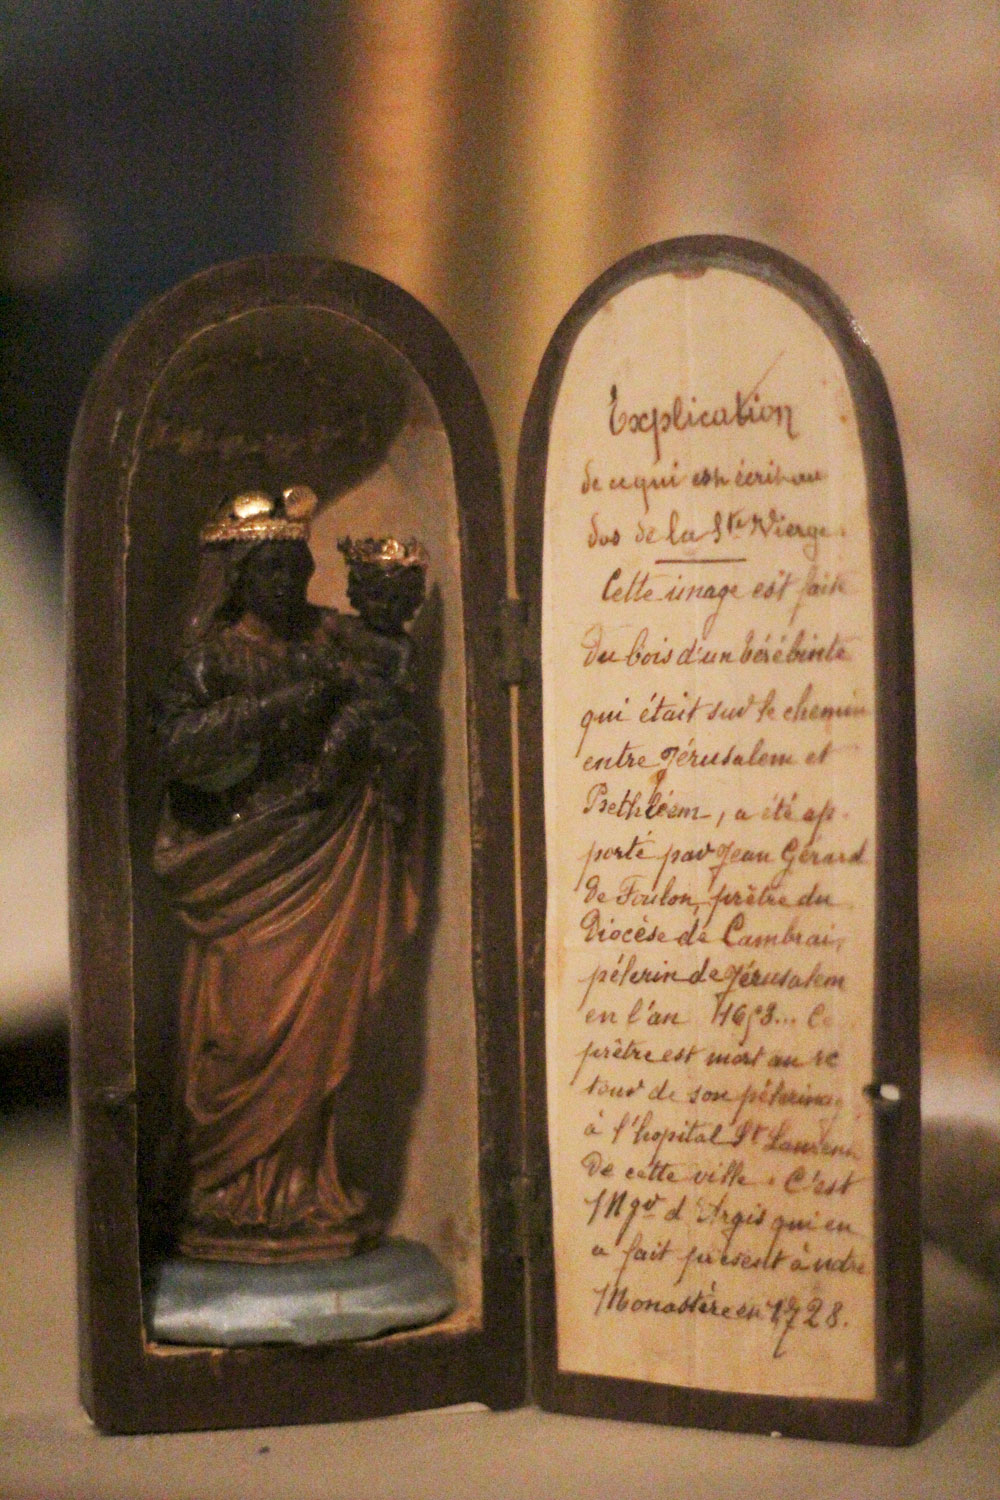 Explication
de ce qui est écrit au
dos de la Ste Vierge
Cette image est faite
du bois d'un térébinte
qui était sur le chemin
entre Jérusalem et
Bethléem, a été ap-
porté par Jean Gérard
de Foulon, prêtre du
Diocèse de Cambrai,
pélerin de Jérusalem
en l'an ... Ce
prêtre est mort au re
tour de son pélerinage
à l'hopital St Laurent
de cette ville. C'est
Mgr d'Argis qui en
a fait présent à notre
Monastère en 1728.